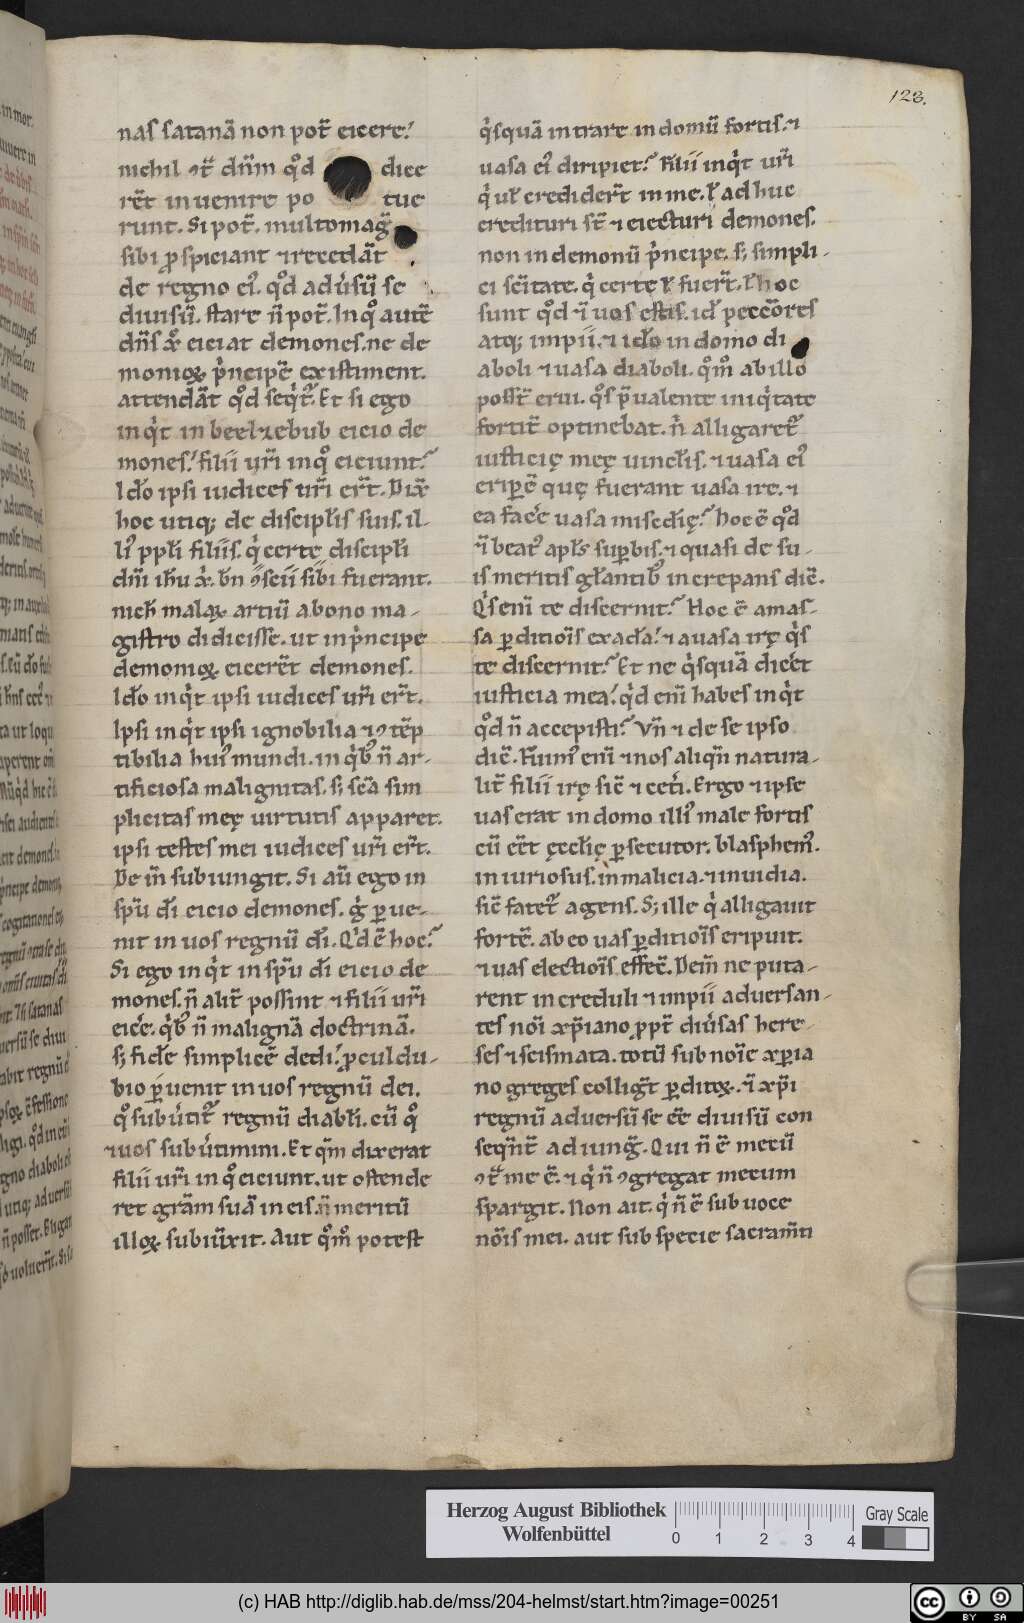 123.
nas satanā non pot̄ eicere.
nichil ꝯt̄ dn̄m qͦd dice
rēt inuenire po tue
runt. Si pot̄. multo maḡ
sibi ꝓspiciant ⁊ recedāt
de regno eiꝰ. qͦd aduͥsū se
diuisū. stare n̄ pot̄. In qͦ autē
dn̄s xͦ eiciat demones. ne de
monioꝝ pͥncipē existiment.
attendāt qͦd seqͥt᷑. Et si ego
inqͥt in beelzebub eicio de
mones. filii ur̄i in qͦ eiciunt.
Ido ipsi iudices ur̄i er̄t. Dix̄
hoc utiqꝫ de discipl̄is suis. il
liꝰ ppl̄i filiis. qͥ certe discipl̄i
dn̄i ih̄u xͥ. bn̄ ꝯscii sibi fuerant.
nich̄ malaꝝ artiū a bono ma-
gistro didicisse. ut in pͥncipe
demonioꝝ eicerēt demones.
Ido inqͥt ipsi iudices ur̄i er̄t.
Ipsi inqͥt ipsi ignobilia ⁊ ꝯtēp
tibilia huiꝰ mundi. in qͥbꝰ n̄ ar-
tificiosa malignitas. sꝫ scā sim
plicitas meę uirtutis apparet.
ipsi testes mei iudices ur̄i er̄t.
De in̄ subiungit. Si aū ego in
spū di eicio demones. gͥ ꝑue-
nit in uos regnū di. Qͥd ē hoc.
Si ego inqͥt in spū di eicio de
mones. n̄ alit̄ possint ⁊ filii ur̄i
eice. qͥbꝰ n̄ malignā doctrinā.
sꝫ fide simplicē dedi. ꝓcul du-
bio ꝑuenit in uos regnū dei.
qͦ subuͥtit᷑ regnū diabl̄i. cū qͦ
⁊ uos subuͥtimini. Et qm̄ dixerat
filii ur̄i in qͦ eiciunt. ut ostende
ret gr̄am suā in eis. n̄ meritū
illoꝝ subiūxit. Aut qͦm̊ potest
qͥsquā intrare in domū fortis. ⁊
uasa eiꝰ diripiet. Filii inqͥt ur̄i
qͥ ul̄ crediderꝰt in me. l̄ adhuc
credituri st̄ ⁊ eiecturi demones.
non in demonū pͥncipe. sꝫ simpli-
ci scītate. qͥ certe l̄ fuer̄t. l̄ hoc
sunt qͦd ⁊ uos estis. id peccōres
atqꝫ impii. ⁊ ido in domo di
aboli ⁊ uasa diaboli. qͦm̊ ab illo
possēt erui. qͦs p̄ualente iniqͥtate
fortit̄ optinebat. n̄ alligaret᷑
iusticię meę uincl̄is. ⁊ uasa eiꝰ
eriꝑē quę fuerant uasa ire. ⁊
ea facͤe uasa misedię. hoc ē qͦd
⁊ beatꝰ apl̄s suꝑbis. ⁊ quasi de su-
is meritis gl̄antibꝰ increpans diē.
Qͥs enī te discernit. Hoc ē a mas-
sa ꝑditiōis exada. ⁊ a uasa irę qͥs
te discernit. Et ne qͥsquā diceͥt
iusticia mea. qͥd enī habes inqͥt
qͦd n̄ accepisti. Vn̄ ⁊ de se ipso
diē. Fuimꝰ enī ⁊ nos aliqn̄ natura-
lit̄ filii irę sic̄ ⁊ cetͥi. Ergo ⁊ ipse
uas erat in domo illiꝰ male fortis
cū eēt ęcclię ꝑsecutor. blasphemꝰ.
iniuriosus. in malicia. ⁊ inuidia.
sic̄ fatet᷑ agens. Sꝫ ille qͥ alligauit
fortē. ab eo uas ꝑditiōis eripuit.
⁊ uas electiōis effeē. Dein̄ ne puta-
rent increduli ⁊ impii aduersan-
tes noī xp̄iano ꝓpt̄ diuͥsas here-
ses ⁊ scismata. totū sub noīe xp̄ia
no greges colligūt ꝑditoꝝ. ⁊ xp̄i
regnū aduersū se eē diuisū con
seqn̄t̄ adiunḡ. Qui n̄ ē mecū
ꝯt̄ me ē. ⁊ qͥ n̄ ꝯgregat mecum
spargit. Non ait. qͥ n̄ ē sub uoce
nōis mei. aut sub specie sacram̄ti
Herzog August Bibliothek
Wolfenbüttel
0 1 2 3 4
Gray Scale
(c) HAB http://diglib.hab.de/mss/204-helmst/start.htm?image=00251
cc BY SA